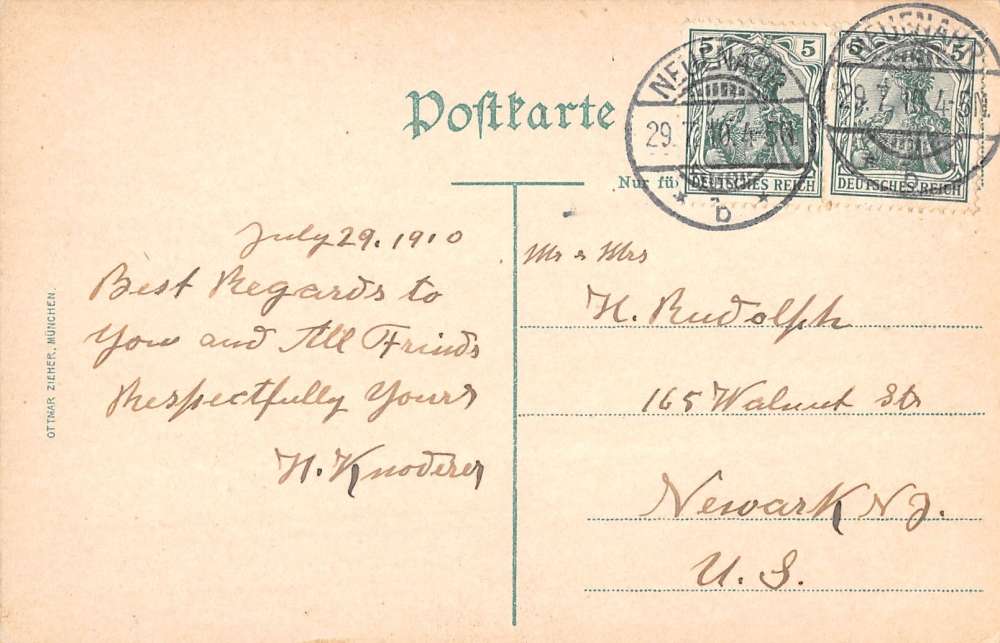 Postkarte
5 5
5 5
NEUENAHR
29.7.10.4-5N.
* b *
NEUENAHR
29.7.10.4-5N.
* b
DEUTSCHES REICH
DEUTSCHES REICH
Nur für
July 29. 1910
Best Regards to
You and All Frinds
Respectfully Yours
H. Knoderer
Mr & Mrs
H. Rudolph
165 Walnut St
Newark N J.
U. S.
OTTMAR ZIEHER, MÜNCHEN.